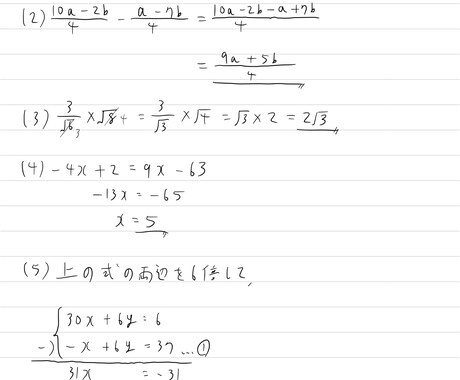 (2) \frac{10a-2b}{4} - \frac{a-7b}{4} = \frac{10a-2b-a+7b}{4}
= \frac{9a+5b}{4}
(3) \frac{3}{\sqrt{6}_3} × \sqrt{8}_4 = \frac{3}{\sqrt{3}} × \sqrt{4} = \sqrt{3} × 2 = 2\sqrt{3}
(4) -4x + 2 = 9x - 63
-13x = -65
x = 5
(5) 上の式の両辺を6倍して、
30x + 6y = 6
-) -x + 6y = 37 … ①
31x = -31